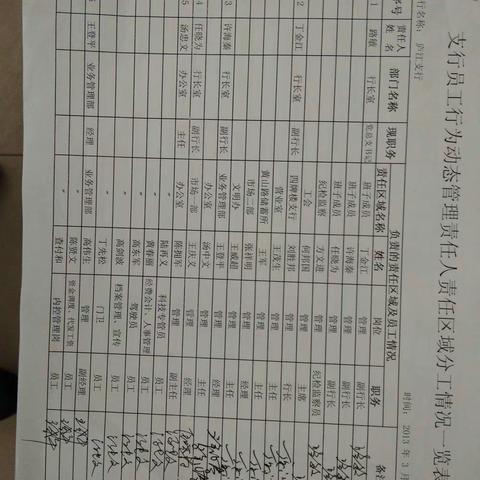 支行员工行为动态管理责任人责任区域分工情况一览表
行名称：庐江支行 时间：2013年3月
序号 责任人姓名 部门名称 现职务 负责的责任区域及员工情况 备注
责任区域名称 姓名 岗位 职务
1 路敏 行长室 党总支书记 班子成员 丁金江 管理 副行长
班子成员 许海秦 管理 副行长
班子成员 任晓为 管理 副行长
纪检监察 方文进 管理 纪检监察员
工会 何邦国 管理 主席
2 丁金江 行长室 副行长 四牌楼支行 刘胜邦 管理 行长
营业室 王茂生 管理 主任
黄山路储蓄所 王军 管理 主任
市场二部 张祥明 管理 经理
3 许海秦 行长室 副行长 文明办 王威超 管理 主任
业务管理部 王登平 管理 经理
4 任晓为 行长室 副行长 办公室 汤中文 管理 主任
市场一部 王庆义 管理 经理
5 汤忠文 办公室 主任 办公室 陈拥军 管理 副主任
〃 陆再义 科技专管员 员工
〃 黄春丽 经费会计、人事管理 员工
〃 高东军 驾驶员 员工
〃 高剑波 档案管理、宣传 员工
〃 丁先松 门卫 员工
王登平 业务管理部 经理 业务管理部 高伟生 管理 副经理
〃 陈贤文 资金调度、代发工资 员工
〃 查付和 内控管理岗 员工